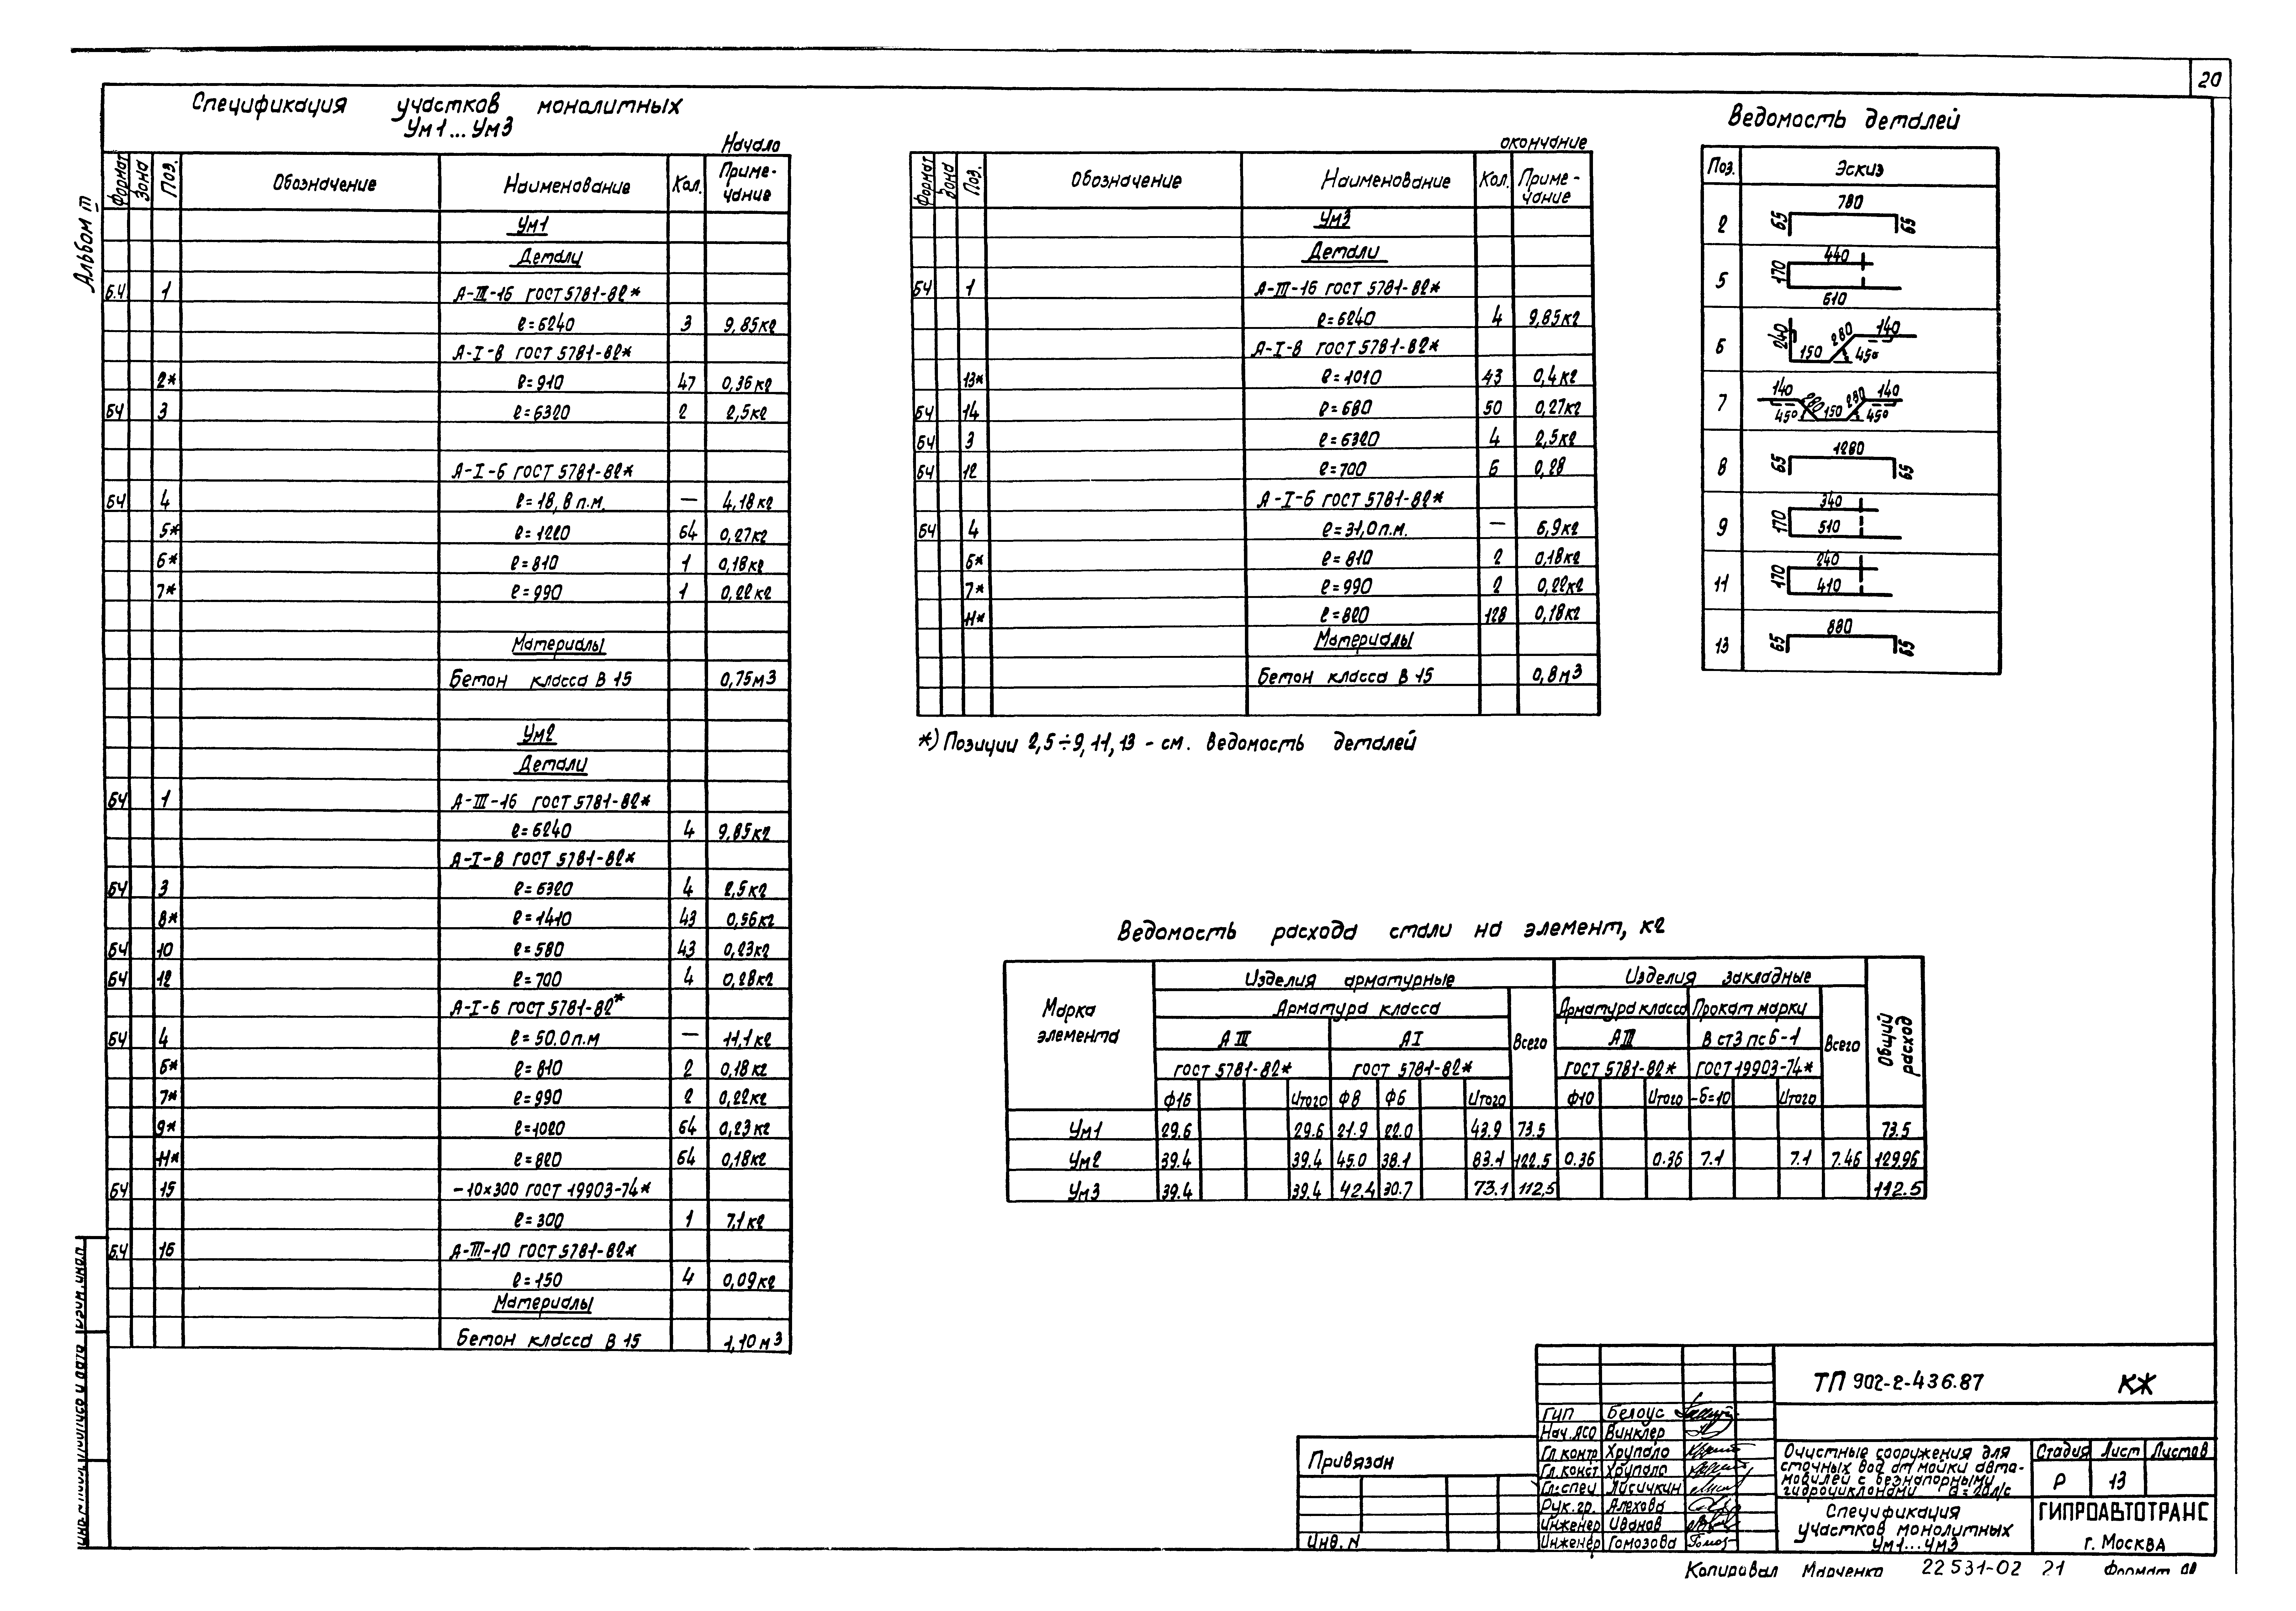 20
Альбом III
Спецификация участков монолитных
Ум1...Ум3
Начало
Формат Зона Поз. Обозначение Наименование Кол. Примечание
Ум1
Детали
Б.Ч. 1 А-III-16 ГОСТ 5781-82*
ℓ=6240 3 9,85кг
А-I-8 ГОСТ 5781-82*
2* ℓ=910 47 0,36кг
БЧ 3 ℓ=6320 2 2,5кг
А-I-6 ГОСТ 5781-82*
БЧ 4 ℓ=18,8 п.м. — 4,18кг
5* ℓ=1220 64 0,27кг
6* ℓ=810 1 0,18кг
7* ℓ=990 1 0,22кг
Материалы
Бетон класса В 15 0,75м3
Ум2
Детали
БЧ 1 А-III-16 ГОСТ 5781-82*
ℓ=6240 4 9,85кг
А-I-8 ГОСТ 5781-82*
БЧ 3 ℓ=6320 4 2,5кг
8* ℓ=1410 43 0,56кг
БЧ 10 ℓ=580 43 0,23кг
БЧ 12 ℓ=700 4 0,28кг
А-I-6 ГОСТ 5781-82*
БЧ 4 ℓ=50,0п.м — 11,1кг
6* ℓ=810 2 0,18кг
7* ℓ=990 2 0,22кг
9* ℓ=1020 64 0,23кг
11* ℓ=820 64 0,18кг
БЧ 15 -10×300 ГОСТ 19903-74*
ℓ=300 1 7,1кг
Б.Ч 16 А-III-10 ГОСТ 5781-82*
ℓ=150 4 0,09кг
Материалы
Бетон класса В 15 1,10м3
окончание
Формат Зона Поз. Обозначение Наименование Кол. Примечание
Ум3
Детали
БЧ 1 А-III-16 ГОСТ 5781-82*
ℓ=6240 4 9,85кг
А-I-8 ГОСТ 5781-82*
13* ℓ=1010 43 0,4кг
БЧ 14 ℓ=680 50 0,27кг
БЧ 3 ℓ=6320 4 2,5кг
БЧ 12 ℓ=700 6 0,28
А-I-6 ГОСТ 5781-82*
БЧ 4 ℓ=31,0п.м. — 6,9кг
6* ℓ=810 2 0,18кг
7* ℓ=990 2 0,22кг
11* ℓ=820 128 0,18кг
Материалы
Бетон класса В 15 0,8м3
*) Позиции 2,5÷9, 11, 13 - см. Ведомость деталей
Ведомость деталей
Поз. Эскиз
2 65 780 65
5 170 440 610
6 240 150 280 45° 140
7 140 45° 280 150 280 45° 140
8 65 1280 65
9 170 340 510
11 170 240 410
13 65 880 65
Ведомость расхода стали на элемент, кг
Марка элемента
Изделия арматурные Изделия закладные
Арматура класса Всего Арматура класса Прокат марки Всего Общий расход
АIII АI АIII ВСт3 пс6-1
ГОСТ 5781-82* ГОСТ 5781-82* ГОСТ 5781-82* ГОСТ 19903-74*
Ф16 Итого Ф8 Ф6 Итого Ф10 Итого -δ=10 Итого
Ум1 29.6 29.6 21.9 22.0 43.9 73.5 73.5
Ум2 39.4 39.4 45.0 38.1 83.1 122.5 0.36 0.36 7.1 7.1 7.46 129.96
Ум3 39.4 39.4 42.4 30.7 73.1 112,5 112.5
Привязан
Инв. N
ГИП Белоус
Нач. АСО Винклер
Гл. контр Хрупало
Гл. конст Хрупало
Гл. спец Лисичкин
Рук. гр. Алехова
Инженер Иванов
Инженер Гомозова
ТП 902-2-436.87 КЖ
Очистные сооружения для
сточных вод от мойки авто-
мобилей с безнапорными
гидроциклонами Q=20л/с
Стадия Лист Листов
Р 13
Спецификация
участков монолитных
Ум1...Ум3
ГИПРОАВТОТРАНС
г. Москва
Копировал Марченко 22531-02 21 Формат